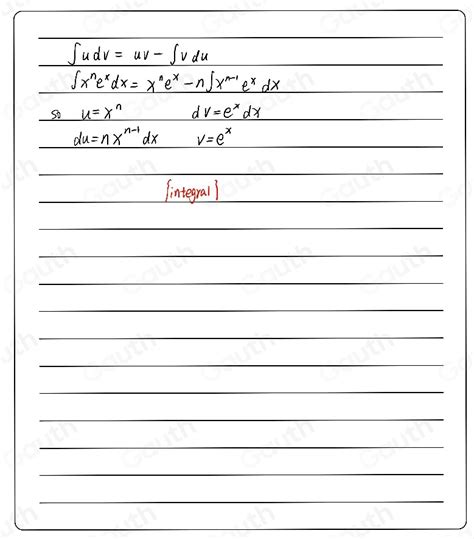 ∫udv = uv − ∫vdu
∫xⁿeˣdx = xⁿeˣ − n∫xⁿ⁻¹eˣdx
so u = xⁿ dv = eˣdx
du = nxⁿ⁻¹dx v = eˣ
[integral]
Gauth